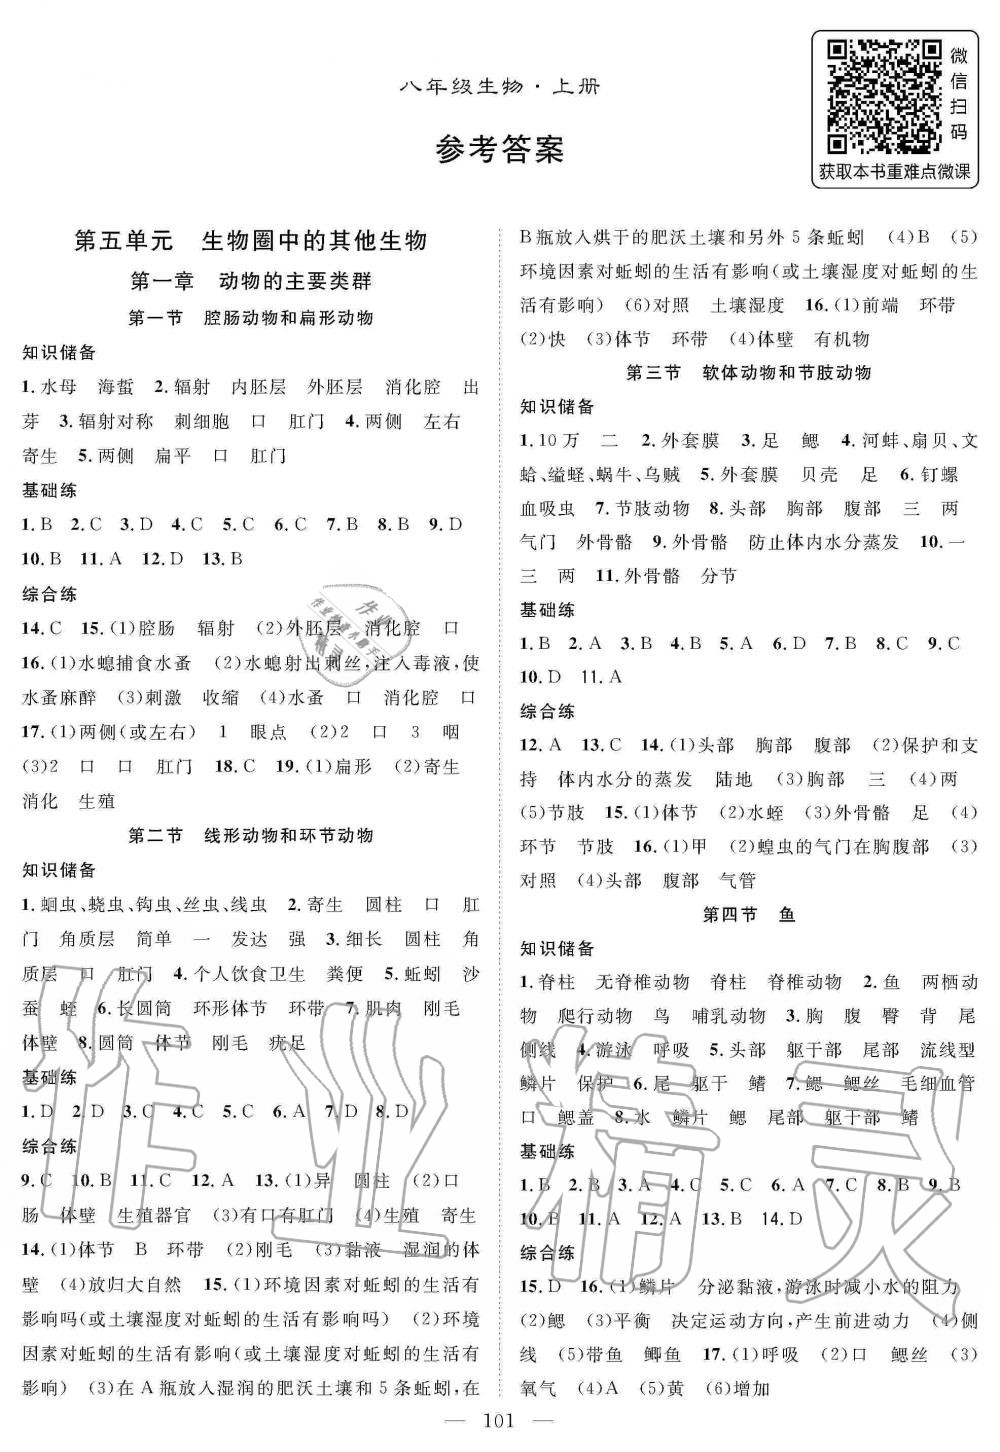 八年级生物·上册
参考答案
微信扫码
获取本书重难点微课
第五单元 生物圈中的其他生物
第一章 动物的主要类群
第一节 腔肠动物和扁形动物
知识储备
1.水母 海蜇 2.辐射 内胚层 外胚层 消化腔 出
芽 3.辐射对称 刺细胞 口 肛门 4.两侧 左右
寄生 5.两侧 扁平 口 肛门
基础练
1.B 2.C 3.D 4.C 5.C 6.C 7.B 8.B 9.D
10.B 11.A 12.D 13.B
综合练
14.C 15.(1)腔肠 辐射 (2)外胚层 消化腔 口
16.(1)水螅捕食水蚤 (2)水螅射出刺丝,注入毒液,使
水蚤麻醉 (3)刺激 收缩 (4)水蚤 口 消化腔 口
17.(1)两侧(或左右) 1 眼点 (2)2 口 3 咽
(3)2 口 口 肛门 18.C 19.(1)扁形 (2)寄生
消化 生殖
第二节 线形动物和环节动物
知识储备
1.蛔虫、蛲虫、钩虫、丝虫、线虫 2.寄生 圆柱 口 肛
门 角质层 简单 一 发达 强 3.细长 圆柱 角
质层 口 肛门 4.个人饮食卫生 粪便 5.蚯蚓 沙
蚕 蛭 6.长圆筒 环形体节 环带 7.肌肉 刚毛
体壁 8.圆筒 体节 刚毛 疣足
基础练
1.D 2.D 3.C 4.C 5.C 6.D 7.D 8.D
综合练
9.C 10.B 11.C 12.A 13.(1)异 圆柱 (2)口
肠 体壁 生殖器官 (3)有口有肛门 (4)生殖 寄生
14.(1)体节 B 环带 (2)刚毛 (3)黏液 湿润的体
壁 (4)放归大自然 15.(1)环境因素对蚯蚓的生活有
影响吗(或土壤湿度对蚯蚓的生活有影响吗) (2)环境
因素对蚯蚓的生活有影响(或土壤湿度对蚯蚓的生活有
影响) (3)在A瓶放入湿润的肥沃土壤和5条蚯蚓,在
B瓶放入烘干的肥沃土壤和另外5条蚯蚓 (4)B (5)
环境因素对蚯蚓的生活有影响(或土壤湿度对蚯蚓的生
活有影响) (6)对照 土壤湿度 16.(1)前端 环带
(2)快 (3)体节 环带 (4)体壁 有机物
第三节 软体动物和节肢动物
知识储备
1.10万 二 2.外套膜 3.足 鳃 4.河蚌、扇贝、文
蛤、缢蛏、蜗牛、乌贼 5.外套膜 贝壳 足 6.钉螺
血吸虫 7.节肢动物 8.头部 胸部 腹部 三 两
气门 外骨骼 9.外骨骼 防止体内水分蒸发 10.一
三 两 11.外骨骼 分节
基础练
1.B 2.A 3.B 4.B 5.A 6.D 7.B 8.C 9.C
10.D 11.A
综合练
12.A 13.C 14.(1)头部 胸部 腹部 (2)保护和支
持 体内水分的蒸发 陆地 (3)胸部 三 (4)两
(5)节肢 15.(1)体节 (2)水蛭 (3)外骨骼 足 (4)
环节 节肢 16.(1)甲 (2)蝗虫的气门在胸腹部 (3)
对照 (4)头部 腹部 气管
第四节 鱼
知识储备
1.脊柱 无脊椎动物 脊柱 脊椎动物 2.鱼 两栖动
物 爬行动物 鸟 哺乳动物 3.胸 腹 臀 背 尾
侧线 4.游泳 呼吸 5.头部 躯干部 尾部 流线型
鳞片 保护 6.尾 躯干 鳍 7.鳃 鳃丝 毛细血管
口 鳃盖 8.水 鳞片 鳃 尾部 躯干部 鳍
基础练
1.B 2.B 3.A 4.C 5.C 6.A 7.C 8.B 9.B
10.B 11.A 12.A 13.B 14.D
综合练
15.D 16.(1)鳞片 分泌黏液,游泳时减小水的阻力
(2)鳃 (3)平衡 决定运动方向,产生前进动力 (4)侧
线 (5)带鱼 鲫鱼 17.(1)呼吸 (2)口 鳃丝 (3)
氧气 (4)A (5)黄 (6)增加
作业精灵
— 101 —